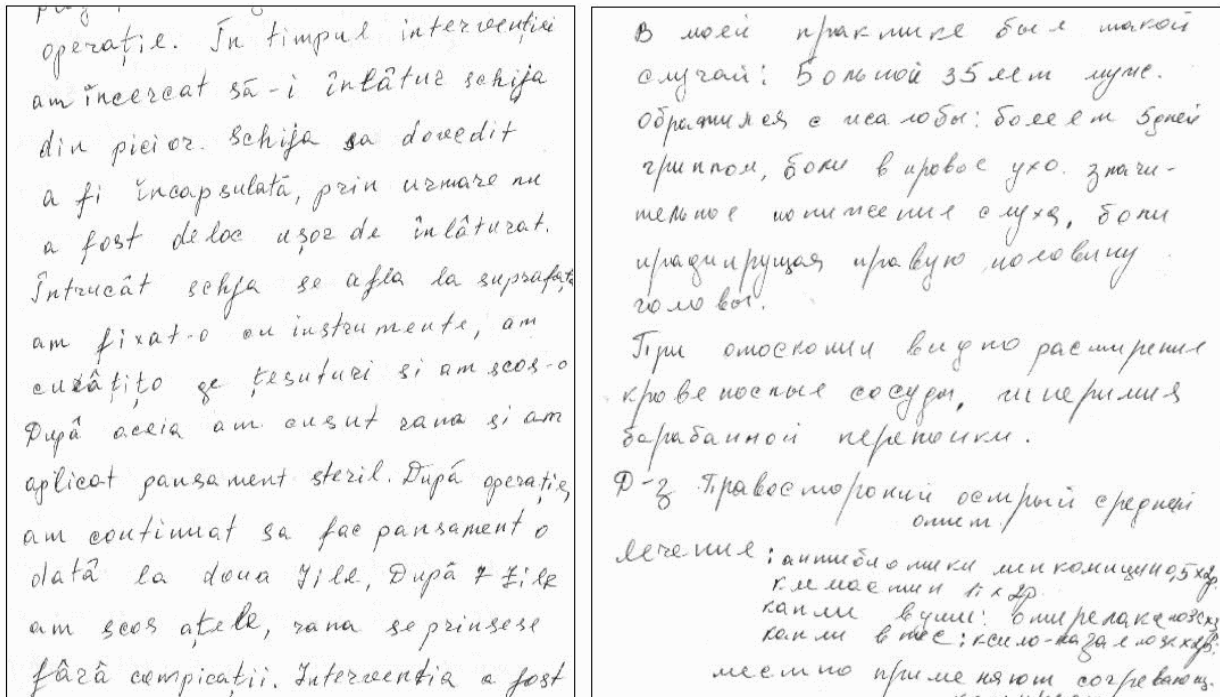 operație. În timpul intervenției
am încercat să-i înlătur schija
din picior. Schija sa dovedit
a fi încapsulată, prin urmare nu
a fost deloc ușor de înlăturat.
Întrucât schja se afla la suprafață
am fixat-o cu instrumente, am
curățito țesuturi si am scos-o
După aceia am cusut rana si am
aplicat pansament steril. După operație,
am continuat sa fac pansament o
dată la doua zile, După 7 zile
am scos ațele, rana se prinsese
fără compicații. Intervenția a fost
В моей практике был такой
случай: Больной 35 лет муж.
Обратился с жалобы: болеет 5 дней
гриппом, боли в правое ухо. значи-
тельное понижение слуха, боли
ирадиирущая правую половину
головы.
При отоскопии видно расширение
кровеносные сосуды, гиперимия
барабанной перепонки.
D-з Правостороний острый средний
отит.
Лечение: антибиотики линкомицин 0,5 х 2р.
клемастин 1т х 2р
капли в уши: отирелакс
капли в нос: ксило-
местно применяют согревающ.